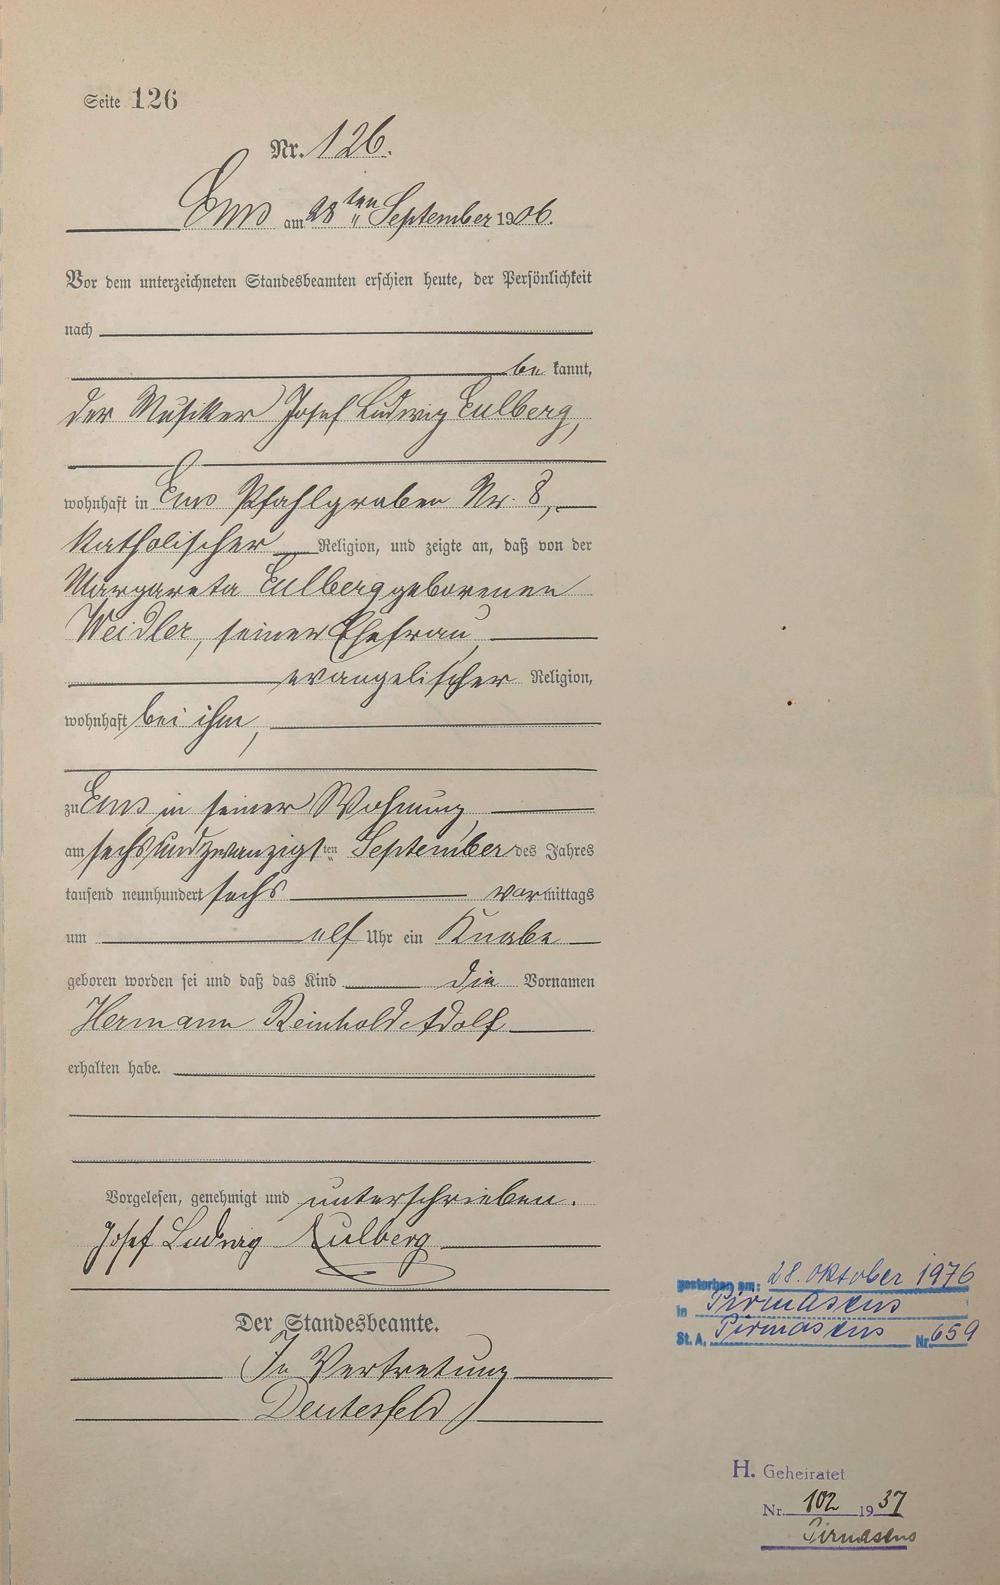 Seite 126
Nr. 126.
Ems am 28ten September 1906.
Vor dem unterzeichneten Standesbeamten erschien heute, der Persönlichkeit
nach
be kannt,
der Musiker Josef Ludwig Eulberg,
wohnhaft in Ems Pfahlgraben Nr. 8,
katholischer Religion, und zeigte an, daß von der
Margareta Eulberg geborenen
Weidler, seiner Ehefrau,
evangelischer Religion,
wohnhaft bei ihm,
zu Ems in seiner Wohnung,
am sechsundzwanzigsten September des Jahres
tausend neunhundert sechs vormittags
um elf Uhr ein Knabe
geboren worden sei und daß das Kind die Vornamen
Hermann Reinhold Adolf
erhalten habe.
Vorgelesen, genehmigt und unterschrieben.
Josef Ludwig Eulberg
Der Standesbeamte.
In Vertretung
gestorben am: 28. Oktober 1976
in Pirmasens
St. A. Pirmasens Nr. 659
H. Geheiratet
Nr. 102 1937
Pirmasens